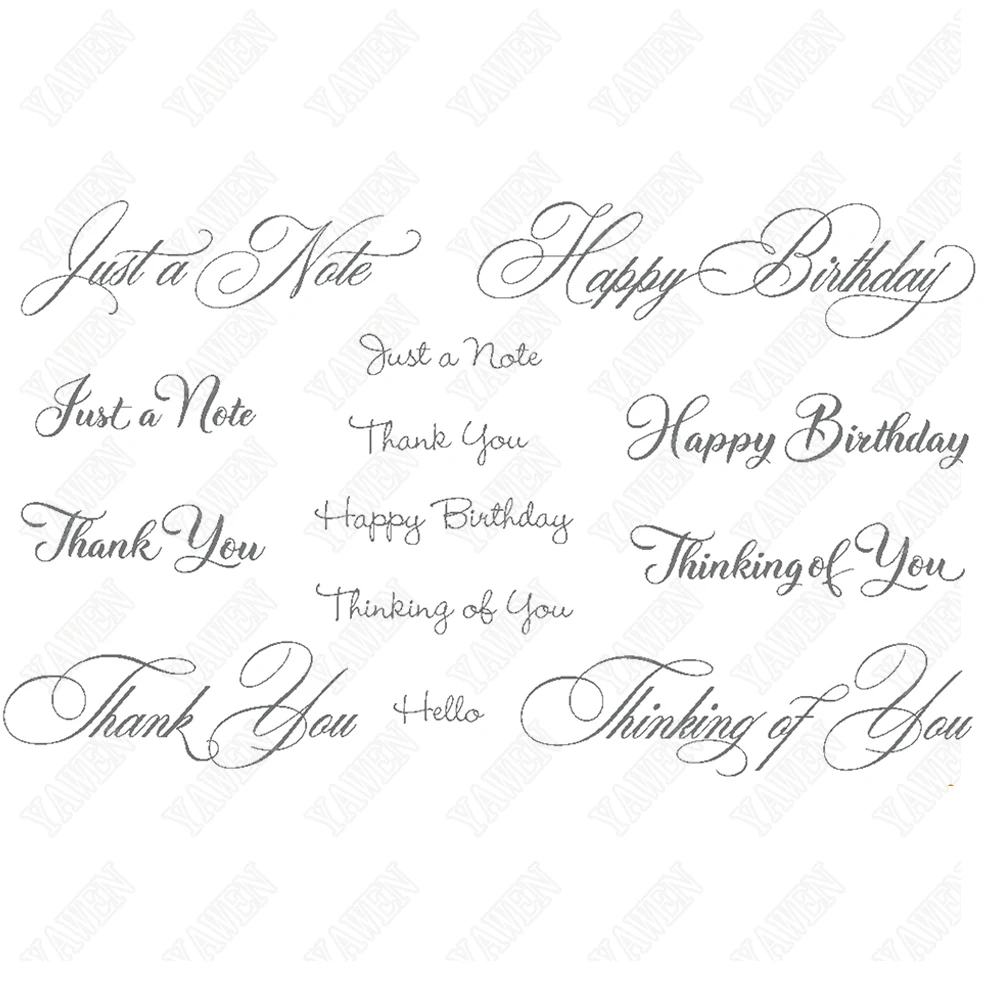 Just a Note
Happy Birthday
Just a Note
Just a Note
Thank You
Happy Birthday
Thank You
Happy Birthday
Thinking of You
Thinking of You
Thank You
Hello
Thinking of You
YAWEN